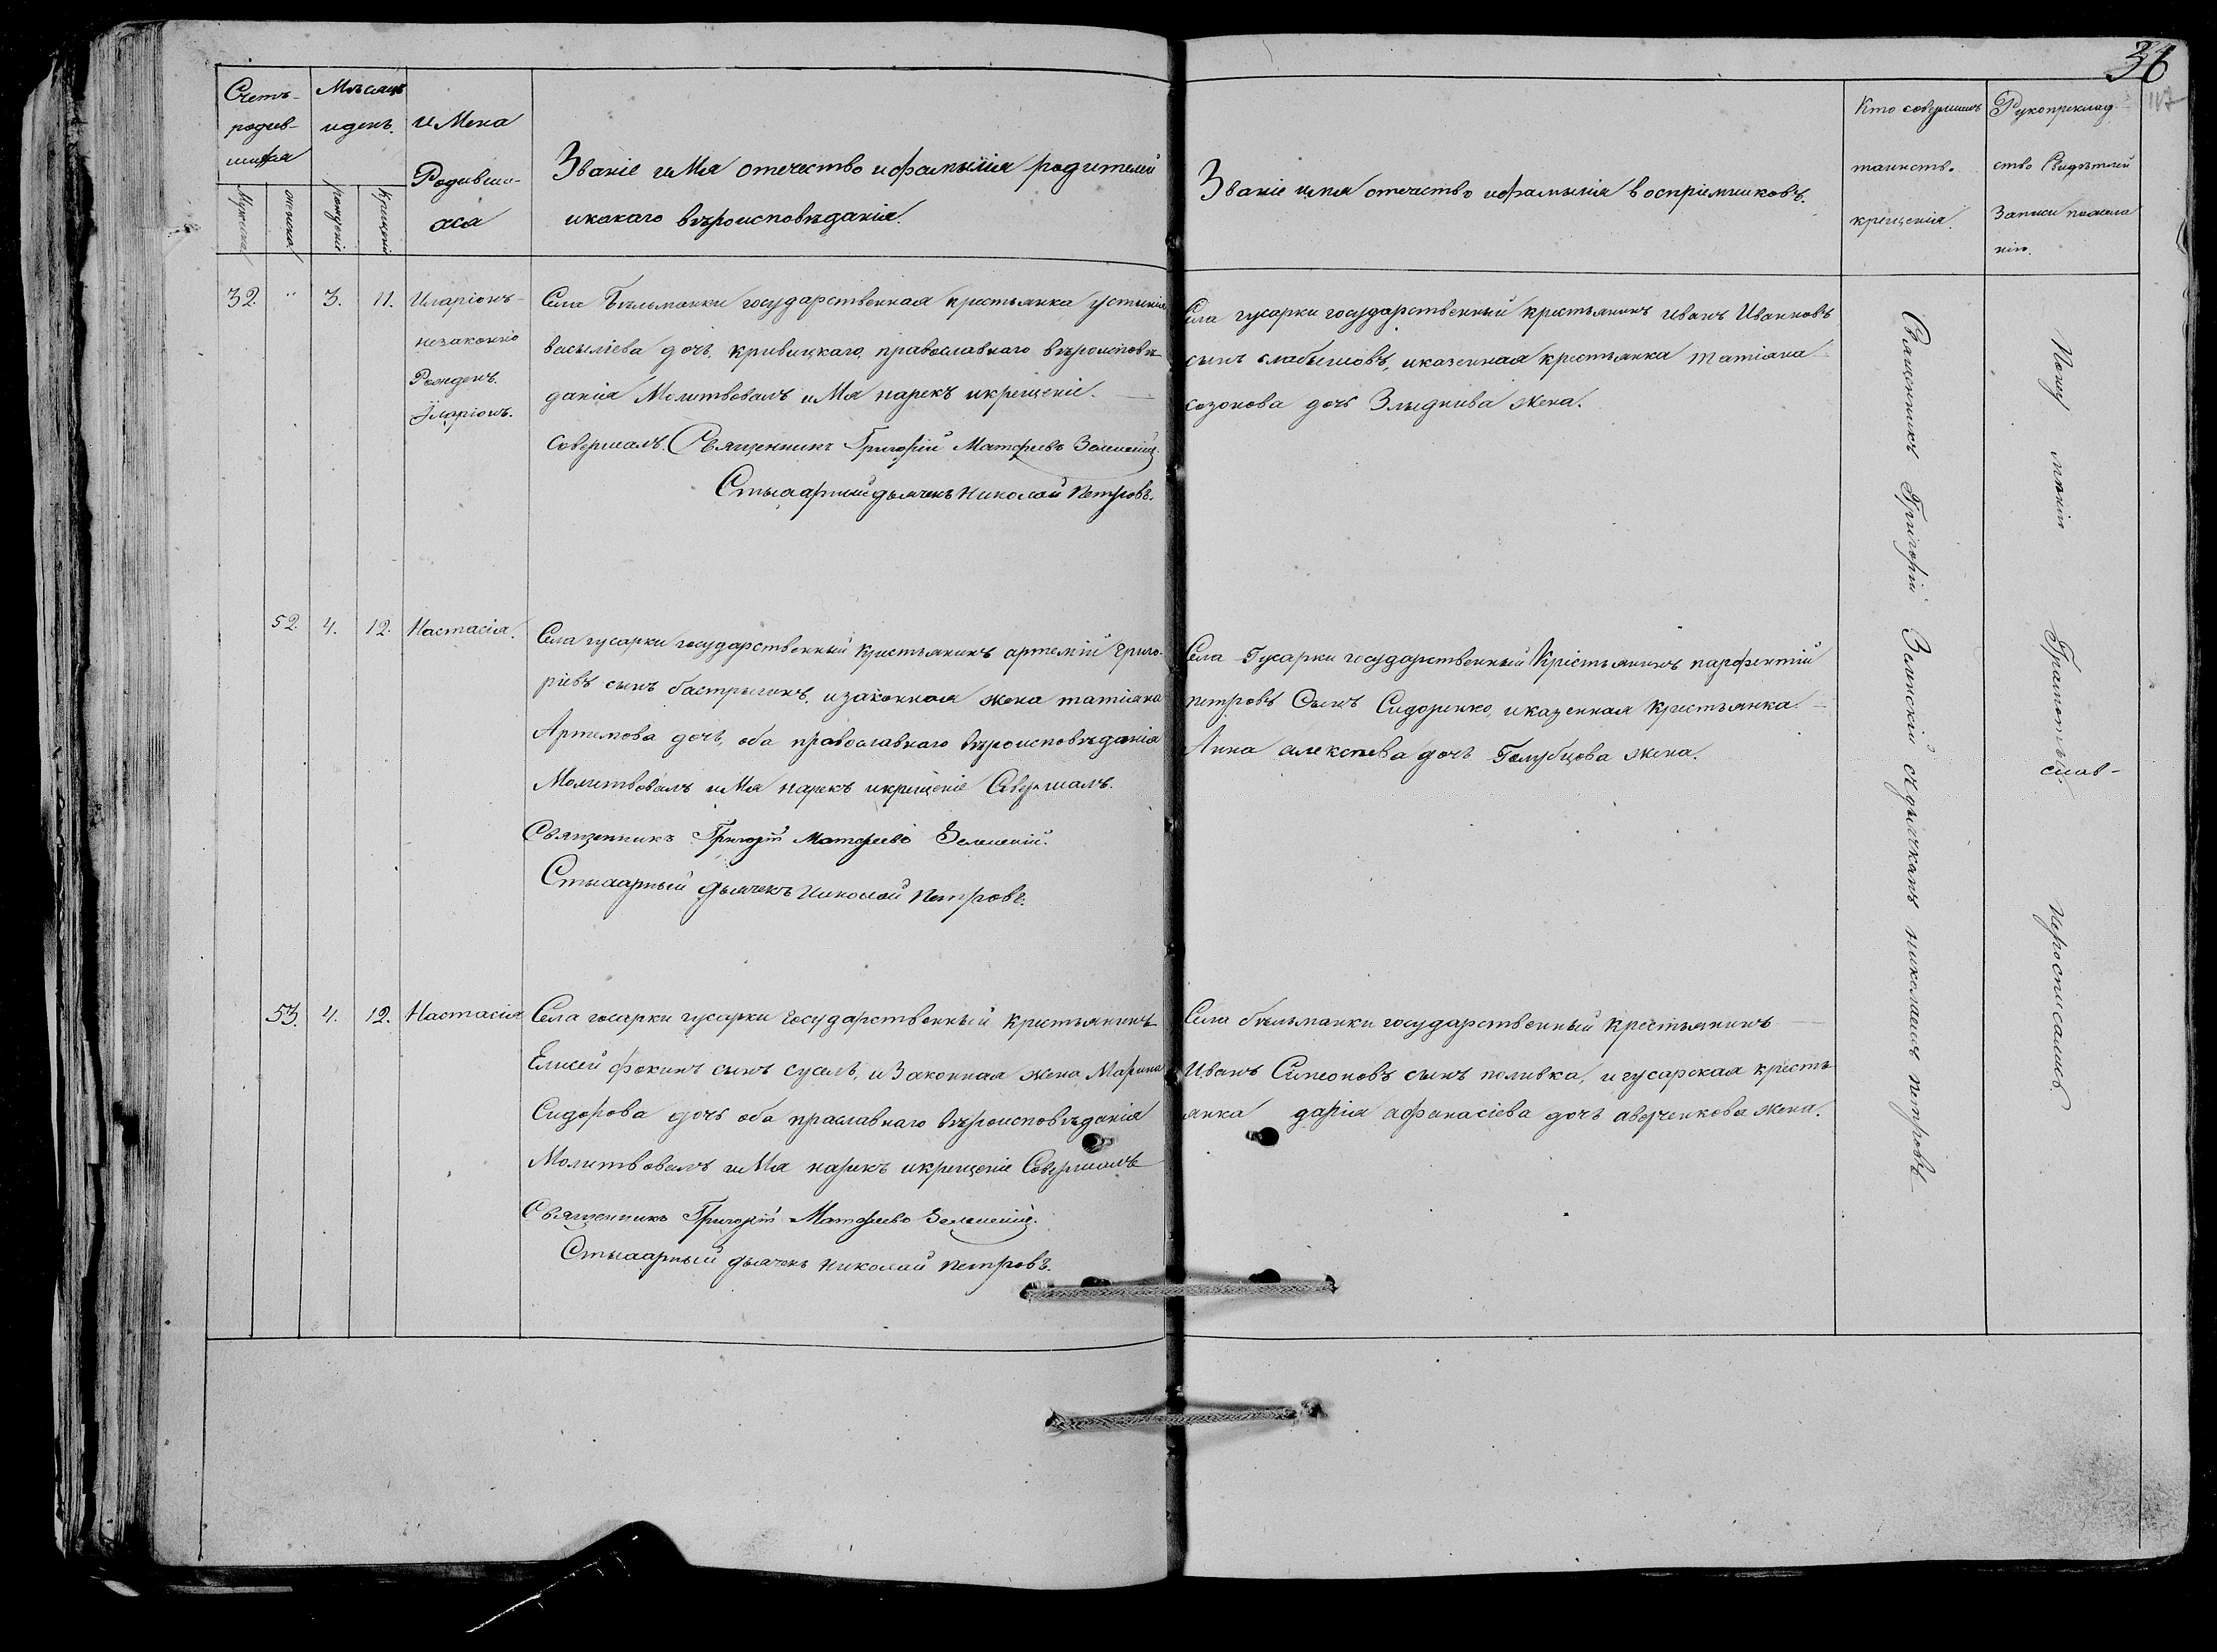 36
117
Счетъ-
родив-
шихся
Мужеска
женска
Мѣсяцъ
и день.
рожденіе
Крещеніе
иМена
Родивши-
хся
Званіе иМя отечество ифамылія родителей
икокаго вѣроисповѣданія.
Званіе имя отечество ифамылія воспріемниковъ.
Кто совершилъ
таинство
крещенія.
Рукоприклад
ство Свидѣтелей
Записи пожела
нію.
32. " 3. 11. Иларіонъ-
незаконно
Рожденъ.
Иларіонъ.
Села Бѣльманки государственная крестьянка устинія
васыліева дочь, кривицкаго, православнаго вѣроисповѣ
данія Молитвовалъ иМя нарекъ икрещеніе.
Совершалъ. Священникъ Григорій Матфеевъ
Стыхарный дьячекъ Николай Петровъ.
Села гусарки государственный крестьянинъ иванъ Ивановъ
сынъ слабышовъ, иказенная крестьянка татіана
созонова дочь Злыднива жена.
52. 4. 12. Настасія.
Села гусарки государственный крестьянинъ артемій Григо-
ріевъ сынъ бастрыгинъ, изаконная жена татіана
Артемова дочь, оба православнаго вѣроисповѣданія
Молитвовалъ иМя нарекъ икрещеніе Совершалъ.
Священникъ Григорій Матфеевъ
Стыхарный дьячекъ Николай Петровъ.
Села Гусарки государственный Крістьянинъ парфентій
петровъ Сынъ Сидоренко, иказенная крестьянка
Анна алексѣева дочь Голубцова жена.
53. 4. 12. Настасія
Села госарки гусарки Государственный крестьянинъ
Елисей фокинъ сынъ сусль, иЗаконная жена Марина
Сидорова дочь оба праславнаго вѣроисповѣданія
Молитвовалъ иМя нарекъ икрещеніе Совершалъ
Священникъ Григорій Матфеевъ
Стыхарный дьячекъ николай петровъ.
Села бѣльманки государственный крестьянинъ
Иванъ Симеоновъ сынъ поливка, игусарская кресть
янка дарія афанасіева дочь аверченкова жена.
Священникъ Григорій Зелинскій сѣдьячкамъ николаемъ петровѣ
По неу мѣнію Грамотѣ. нероспісались